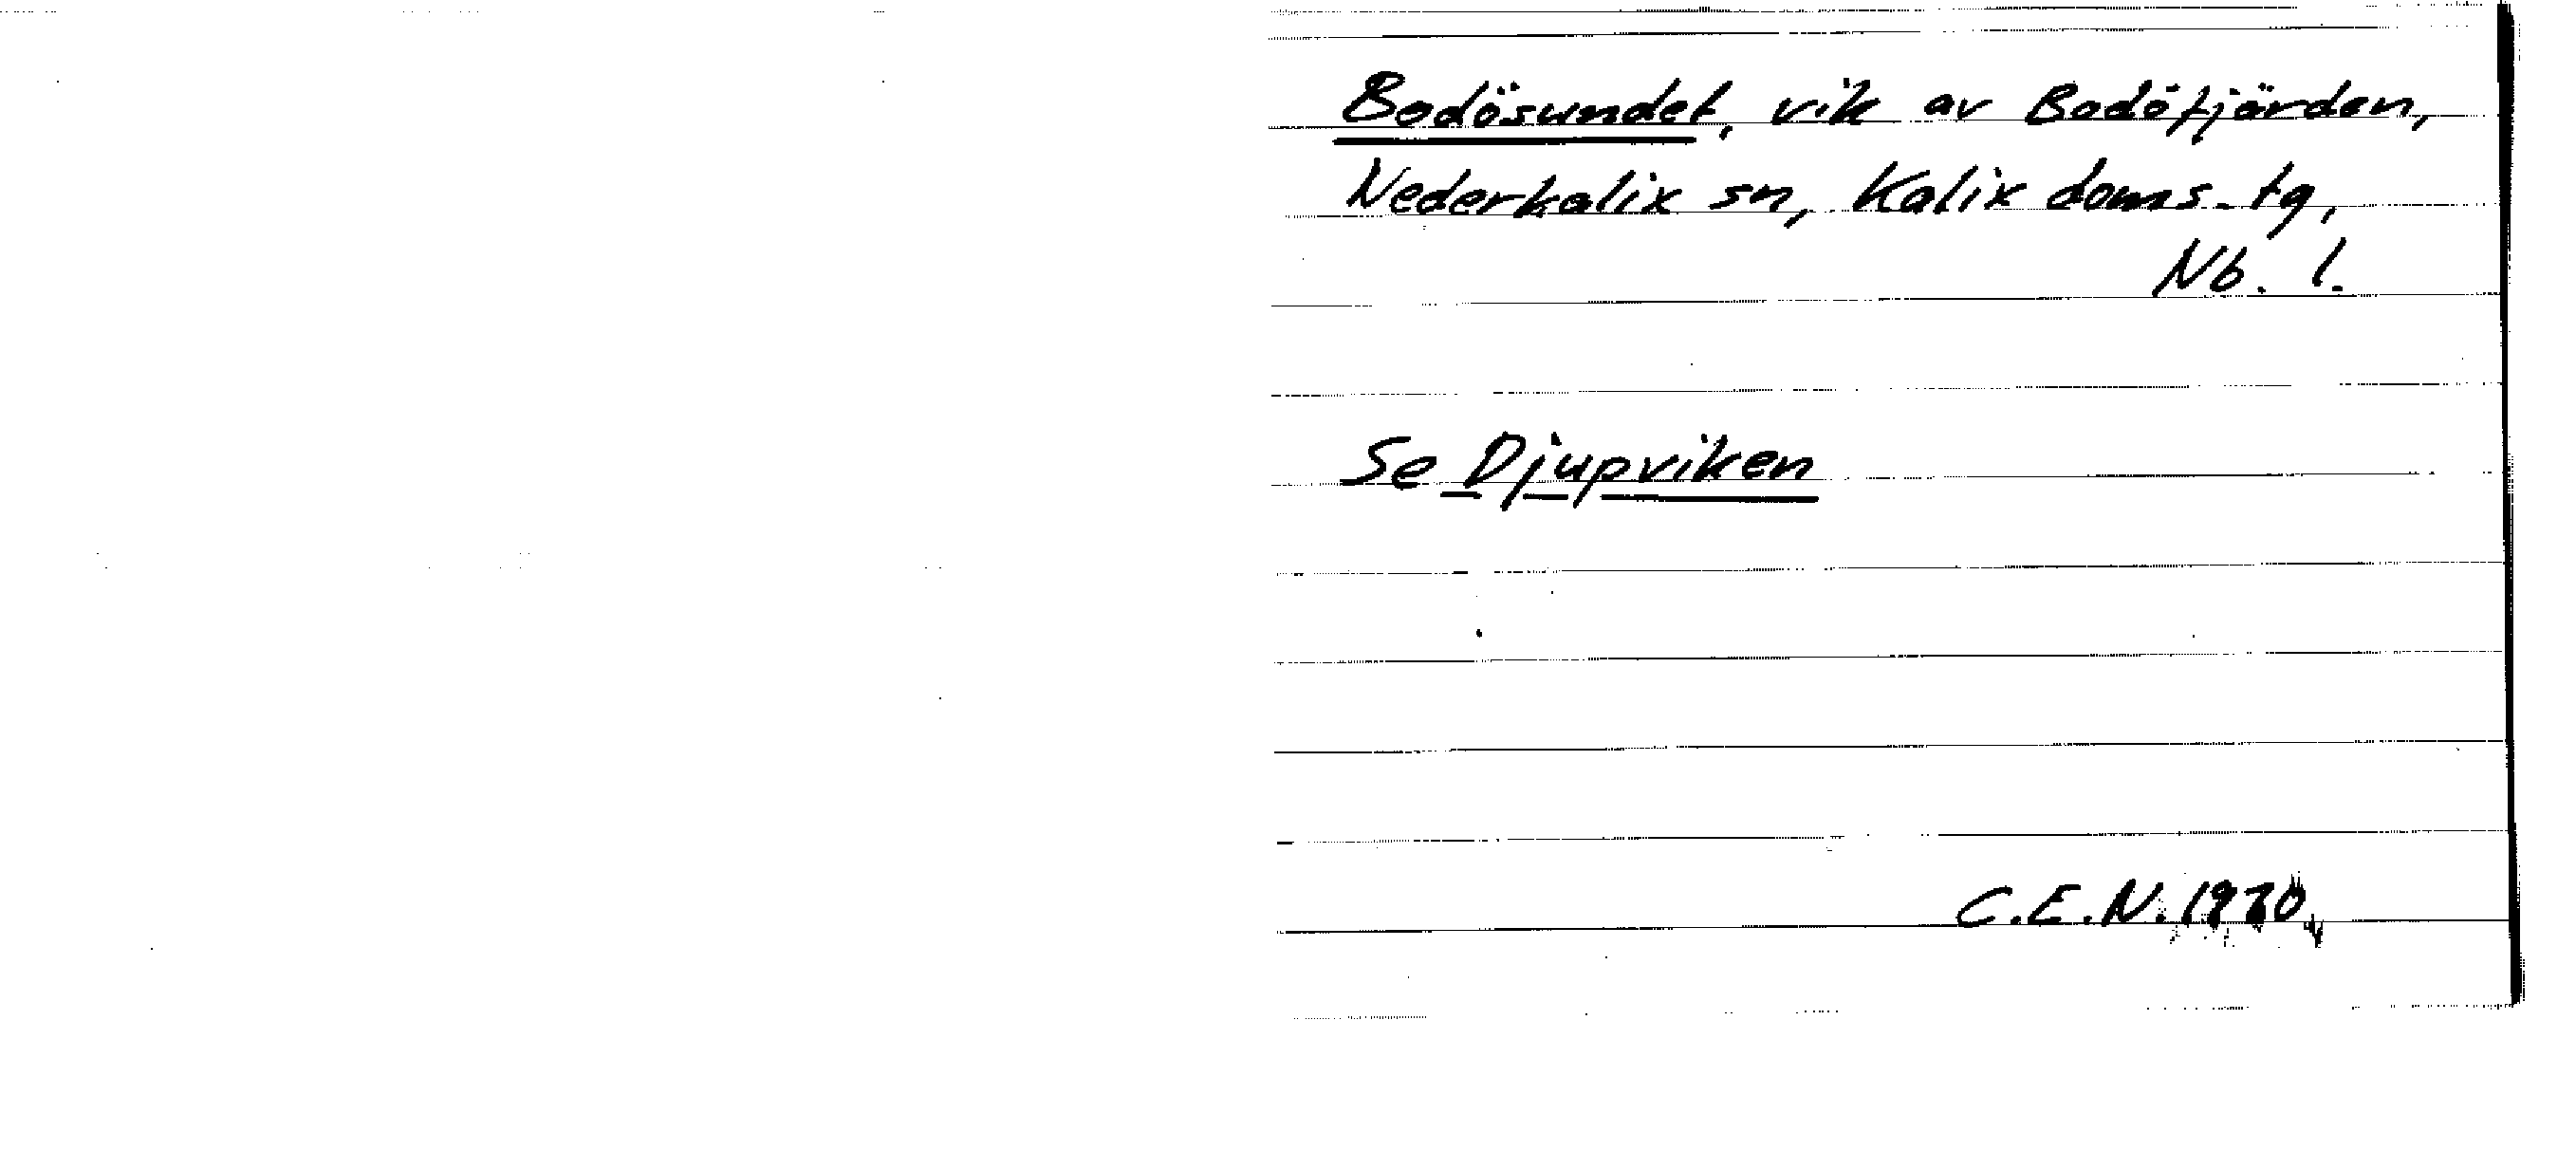 Bodösundet, vik av Bodöfjärden,
Nederkalix sn, Kalix doms. tg,
Nb. l.
Se Djupviken
C.E.N. 1970.